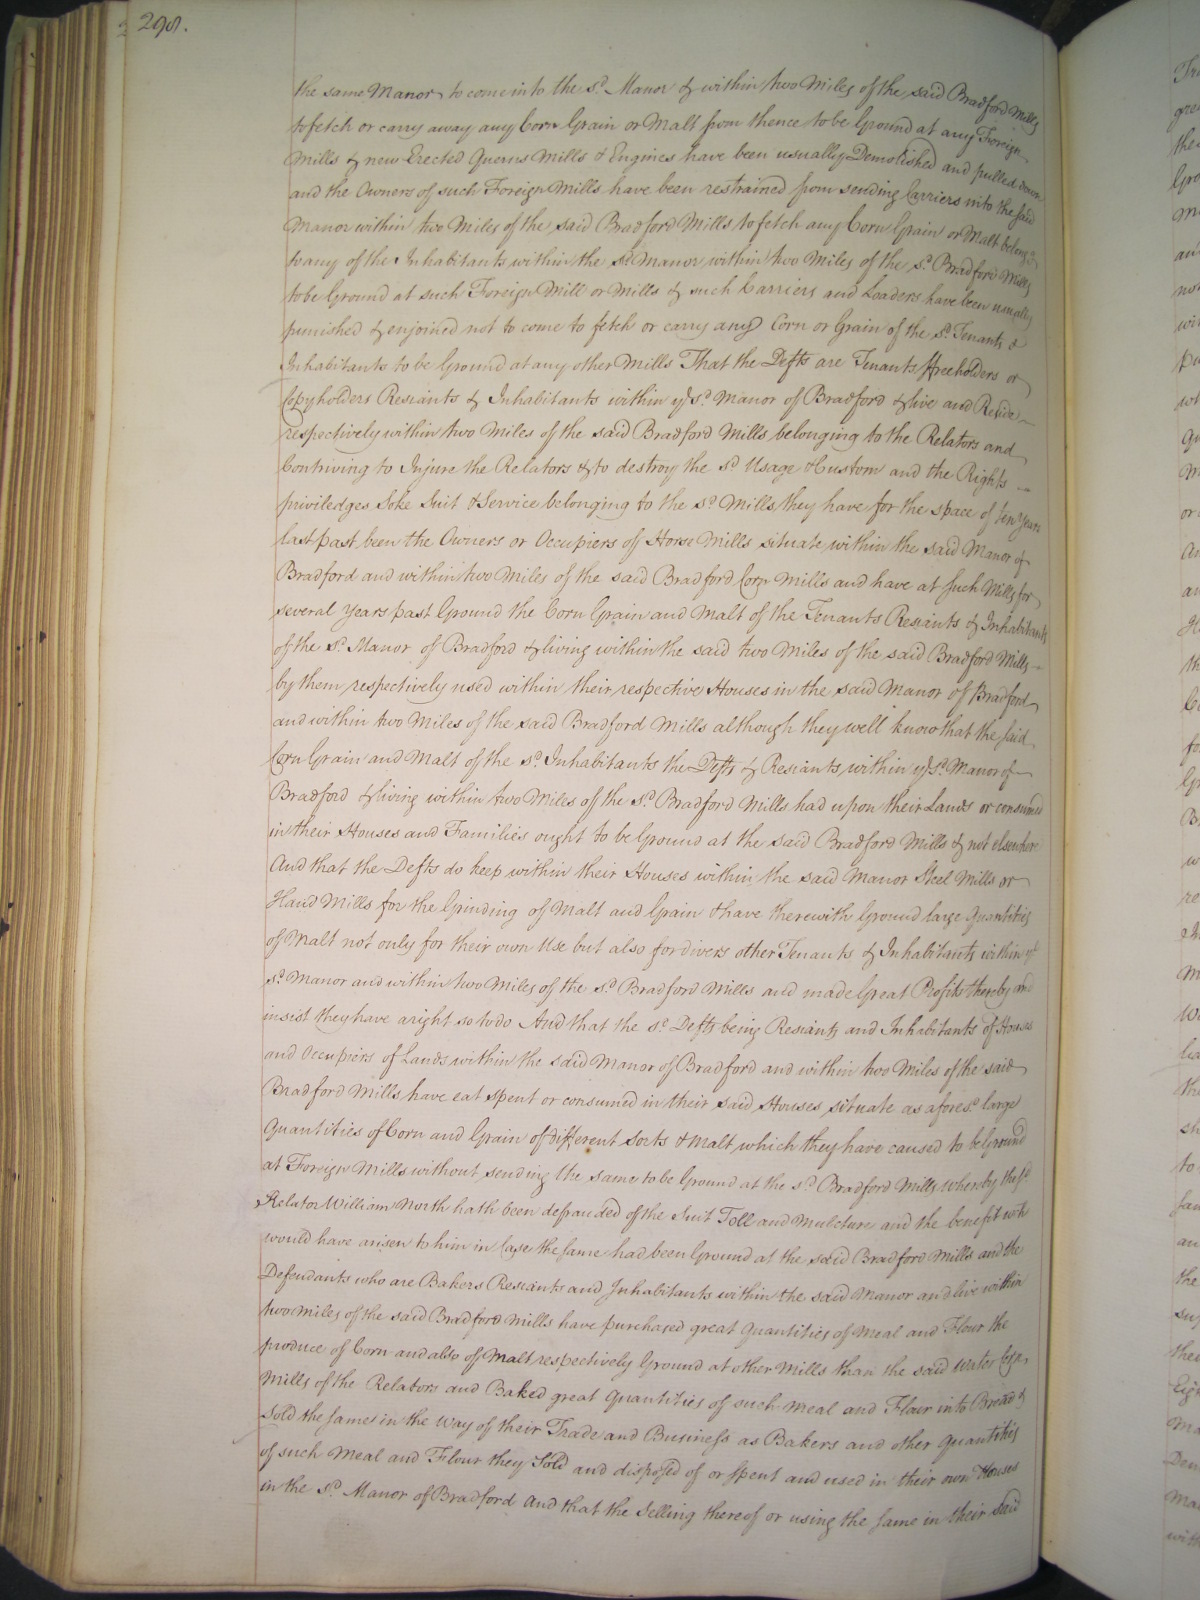 298.
the same Manor to come into the sd. Manor & within two Miles of the said Bradford Mills
to fetch or carry away any Corn Grain or Malt from thence to be Ground at any Foreign
Mills & new Erected Querns Mills & Engines have been usually Demolished and pulled down
and the Owners of such Foreign Mills have been restrained from sending Carriers into the said
Manor within two Miles of the said Bradford Mills to fetch any Corn Grain or Malt belongg
to any of the Inhabitants within the sd Manor within two Miles of the sd. Bradford Mills
to be Ground at such Foreign Mill or Mills & such Carriers and Loaders have been usually
punished & enjoined not to come to fetch or carry any Corn or Grain of the sd. Tenants &
Inhabitants to be Ground at any other Mills That the Defts are Tenants Freeholders or
Copyholders Resiants & Inhabitants within ye sd. Manor of Bradford & live and Reside
respectively within two Miles of the said Bradford Mills belonging to the Relators and
Contriving to Injure the Relators & to destroy the sd Usage & Custom and the Rights
priviledges Soke Suit & Service belonging to the sd. Mills they have for the space of ten years
last past been the Owners or Occupiers of Horse Mills situate within the said Manor of
Bradford and within two Miles of the said Bradford Corn Mills and have at such Mills for
several years past Ground the Corn Grain and Malt of the Tenants Resiants & Inhabitants
of the sd. Manor of Bradford & living within the said two Miles of the said Bradford Mills
by them respectively used within their respective Houses in the said Manor of Bradford
and within two Miles of the said Bradford Mills although they well know that the said
Corn Grain and Malt of the sd. Inhabitants the Defts & Resiants within ye sd. Manor of
Bradford & living within two Miles of the sd. Bradford Mills had upon their Lands or consumed
in their Houses and Families ought to be Ground at the said Bradford Mills & not elsewhere
And that the Defts do keep within their Houses within the said Manor Steel Mills or
Hand Mills for the Grinding of Malt and Grain & have therewith Ground large Quantities
of Malt not only for their own Use but also for divers other Tenants & Inhabitants within ye
sd. Manor and within two Miles of the sd. Bradford Mills and made Great Profits thereby and
insist they have a right so to do And that the sd. Defts being Resiants and Inhabitants of Houses
and Occupiers of Lands within the said Manor of Bradford and within two Miles of the said
Bradford Mills have eat spent or consumed in their said Houses situate as aforesd. large
Quantities of Corn and Grain of different Sorts & Malt which they have caused to be Ground
at Foreign Mills without sending the same to be Ground at the sd. Bradford Mills whereby the sd
Relator William North hath been defrauded of the Suit Toll and Mulcture and the benefit wch
would have arisen to him in Case the same had been Ground at the said Bradford Mills and the
Defendants who are Bakers Resiants and Inhabitants within the said Manor and live within
two Miles of the said Bradford Mills have purchased great Quantities of Meal and Flour the
produce of Corn and also of Malt respectively Ground at other Mills than the said Water Corn
Mills of the Relators and Baked great Quantities of such Meal and Flour into Bread &
Sold the same in the Way of their Trade and Business as Bakers and other Quantities
of such Meal and Flour they Sold and disposed of or Spent and used in their own Houses
in the sd. Manor of Bradford And that the Selling thereof or using the same in their said